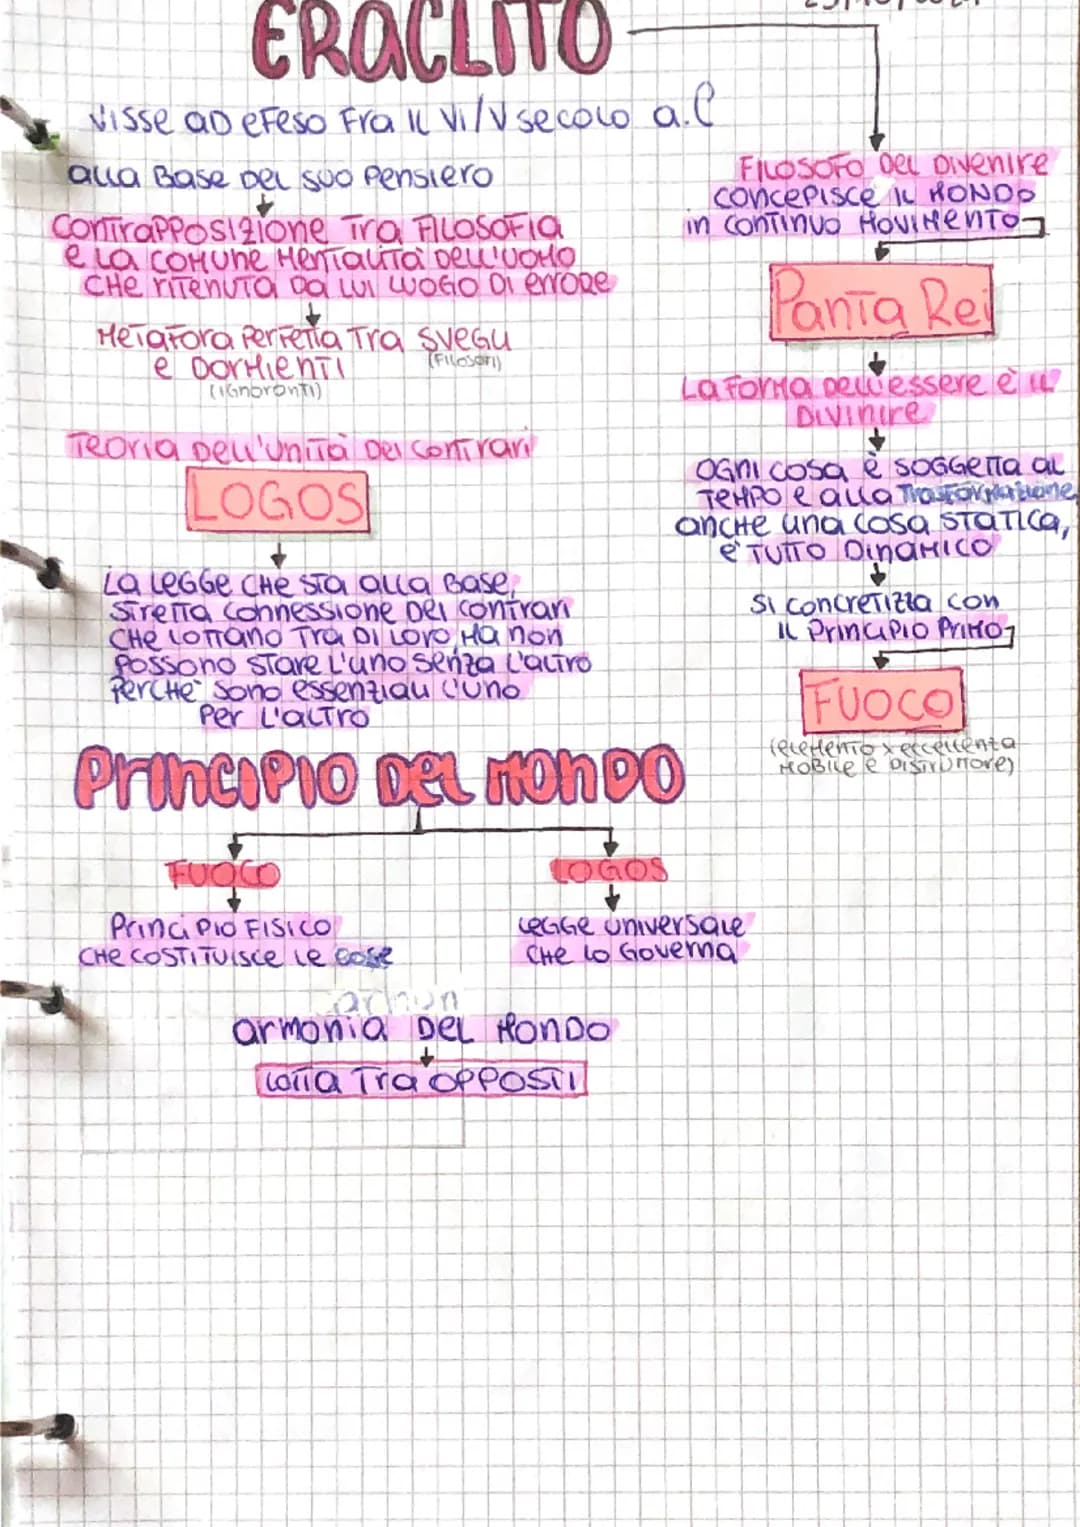 ERACLITO
Visse ad Efeso fra il VI/V secolo a.C
alla base del suo pensiero
Contrapposizione tra filosofia
e la comune mentalità dell'uomo
che ritenuta da lui luogo di errore
Metafora perfetta tra svegli
(filosofi)
e dormienti
(ignoranti)
Teoria dell'unità dei contrari
LOGOS
La legge che sta alla base,
stretta connessione dei contrari
che lottano tra di loro, ma non
possono stare l'uno senza l'altro
perche sono essenziali l'uno
per l'altro
Filosofo del divenire
concepisce il mondo
in continuo movimento
Panta Rei
La forma dell'essere è il
divinire
Ogni cosa è soggetta al
tempo e alla trasformazione,
anche una cosa statica,
e' tutto dinamico
Si concretizza con
il principio primo
FUOCO
(elemento x eccellenza
mobile e distruttore)
PRINCIPIO DEL MONDO
FUOCO
Principio fisico
che costituisce le cose
LOGOS
Legge universale
che lo governa
armonia del mondo
lotta tra opposti